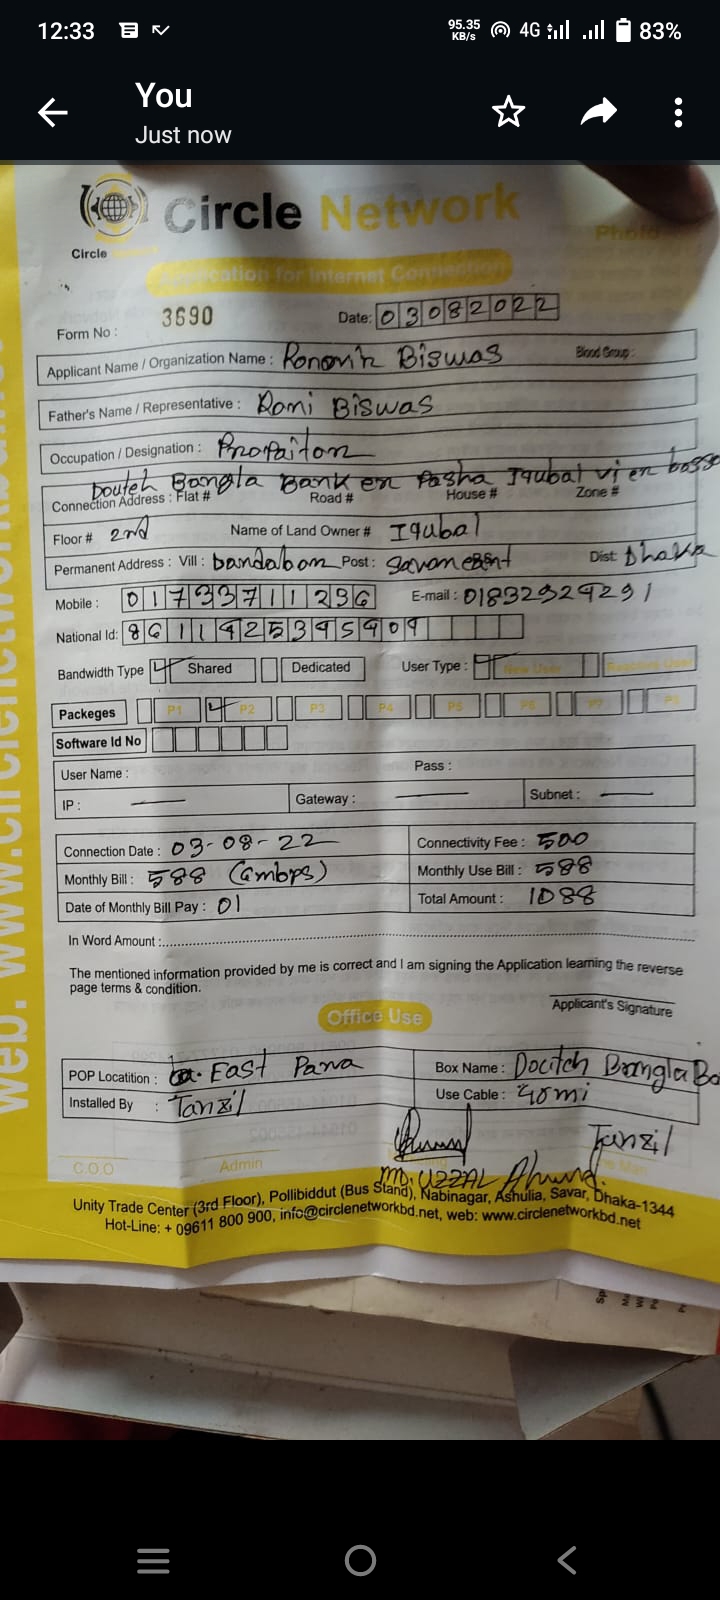 12:33
95.35 KB/s 4G 83%
You
Just now
Circle Network
Circle
Photo
Application for Internet Connection
Form No : 3690 Date: 03082022
Applicant Name / Organization Name : Biswas Blood Group :
Father's Name / Representative : Romi Biswas
Occupation / Designation : Propaitor
Doutch Bangla Bank er Pasha Iqubal
Connection Address : Flat # Road # House # Zone #
Floor # 2nd Name of Land Owner # Iqubal
Permanent Address : Vill : bandabon Post : Dist: Dhaka
Mobile : 01733711236 E-mail : 01832929291
National Id: 8611425395909
Bandwidth Type Shared Dedicated User Type : New User
Packeges P1 P2 P3 P4 P5 P6 P7 P8
Software Id No
User Name : Pass :
IP : Gateway : Subnet :
Connection Date : 03-08-22 Connectivity Fee : 500
Monthly Bill : 588 Monthly Use Bill : 588
Date of Monthly Bill Pay : 01 Total Amount : 1088
In Word Amount :
The mentioned information provided by me is correct and I am signing the Application learning the reverse
page terms & condition.
Applicant's Signature
Office Use
POP Locatition : East Para Box Name : Docitch Bangla Ba
Installed By : Tanzil Use Cable : 40mi
Tanzil
C.O.O Admin
MD. UZZAL Ahmed.
Unity Trade Center (3rd Floor), Pollibiddut (Bus Stand), Nabinagar, Ashulia, Savar, Dhaka-1344
Hot-Line: + 09611 800 900, info@circlenetworkbd.net, web: www.circlenetworkbd.net